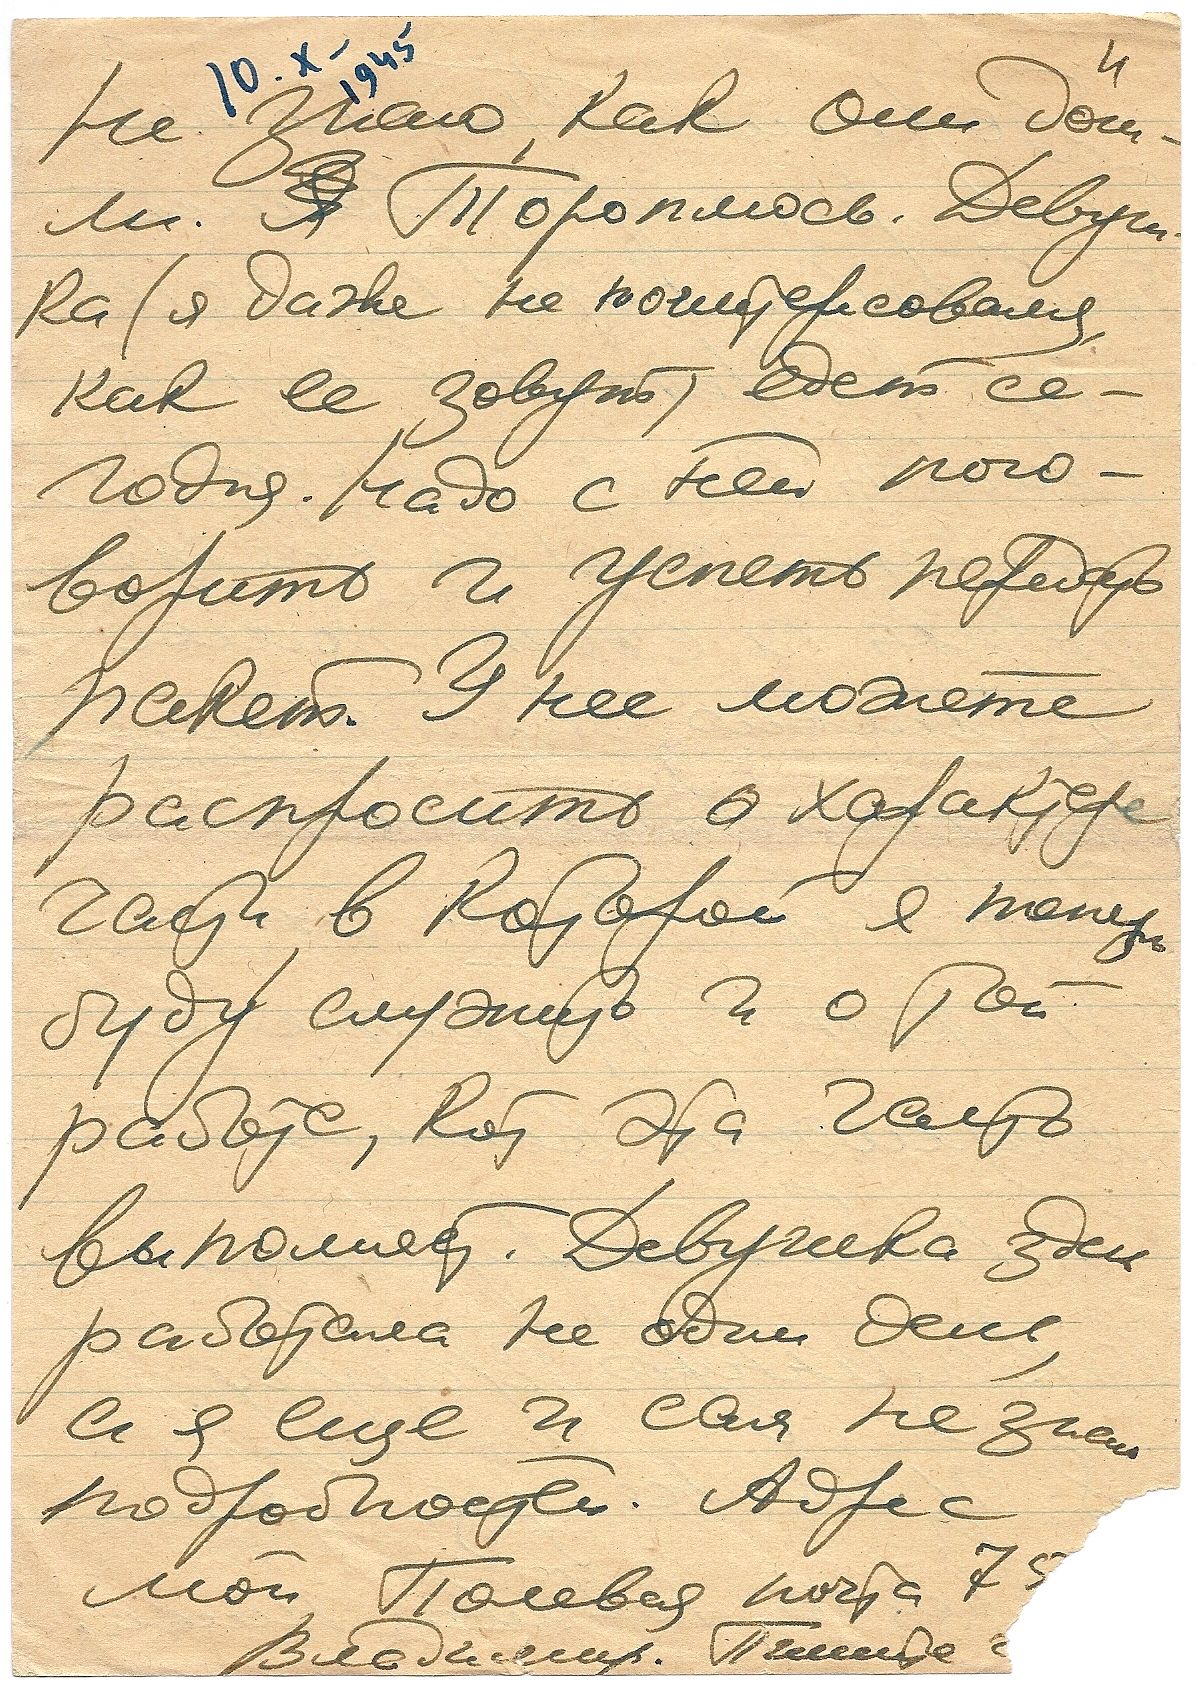 10.X-1945
Не знаю, как они дош-
ли. Я тороплюсь. Девуш-
ка (я даже не поинтересовался,
как ее зовут) едет се-
годня. Надо с ней пого-
ворить и успеть передать
пакет. У нее можете
распросить о характере
части в которой я теперь
буду служить и о той
работе, кот эта часть
выполняет. Девушка здесь
работала не один день,
а я еще и сам не знаю
подробностей. Адрес
мой Полевая почта 75
Владимир. Пишите